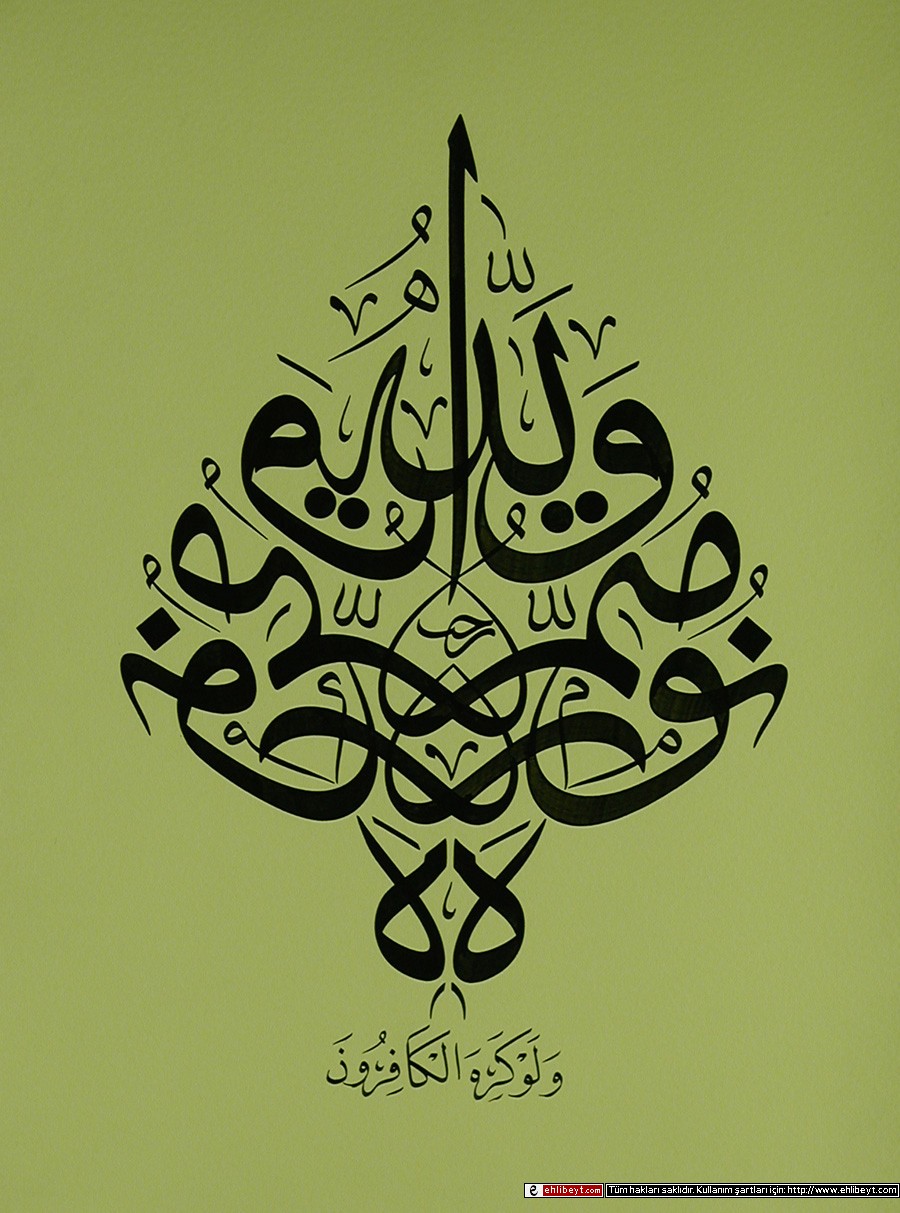 وَاللّٰهُ
مُتِمُّ
نُورِهِ
وَلَوْ كَرِهَ الْكَافِرُونَ
ehlibeyt.com Tüm hakları saklıdır. Kullanım şartları için: http://www.ehlibeyt.com